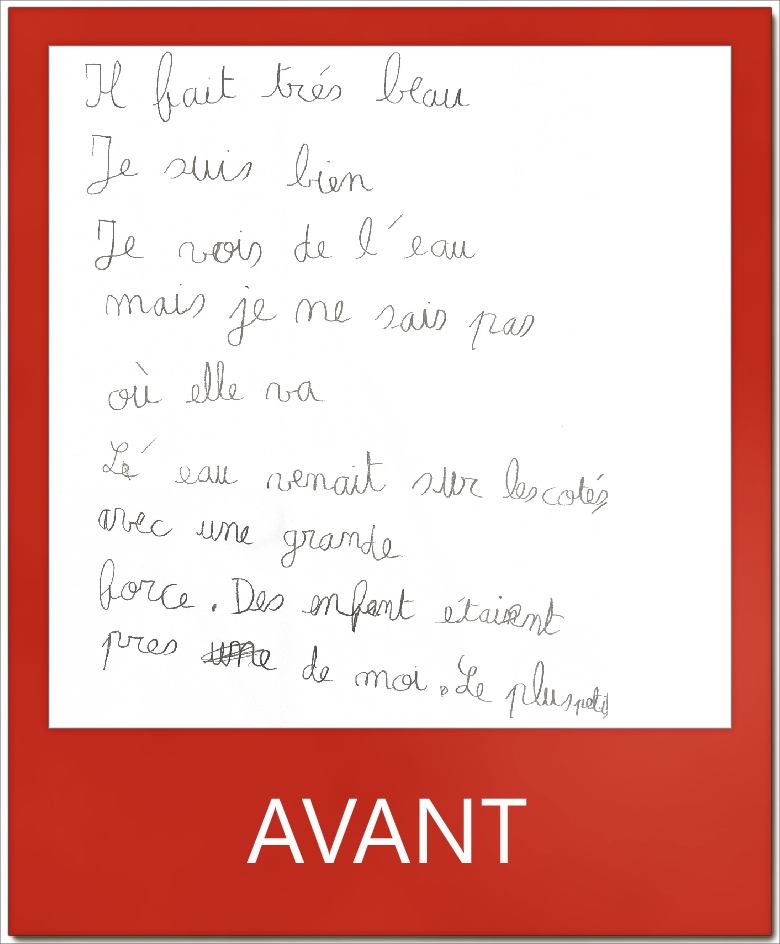 Il fait trés beau
Je suis bien
Je vois de l'eau
mais je ne sais pas
où elle va
Le' eau venait sur les cotés
avec une grande
force. Des enfant étaient
pres de moi. Le plus petit
AVANT